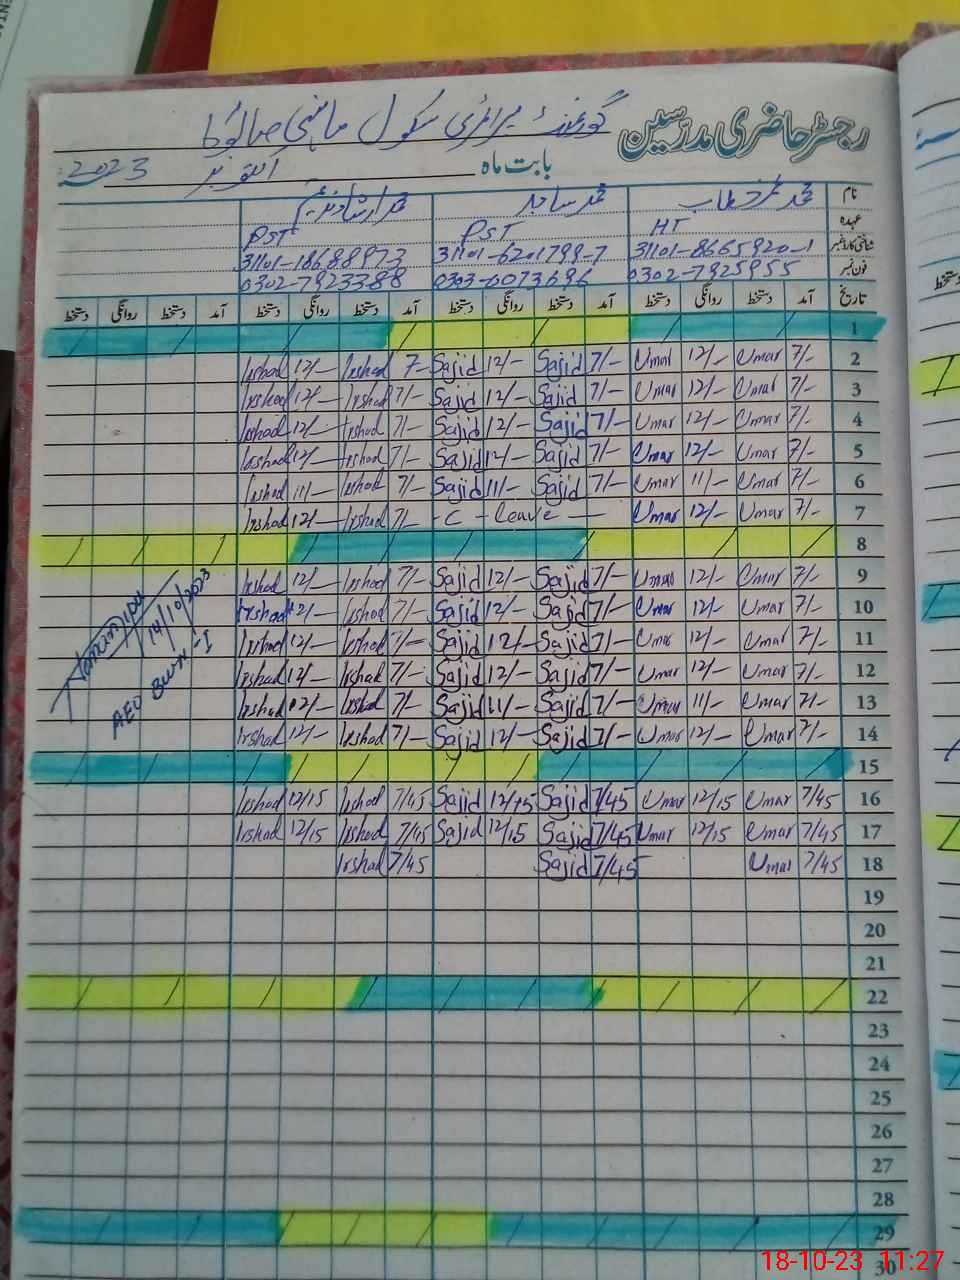 رجسٹر حاضری مدرسین گورنمنٹ پرائمری سکول
بابت ماہ اکتوبر 2023
نام محمد عمر خطاب محمد ساجد محمد ارشاد ندیم
عہدہ HT PST PST
شناختی کارڈ نمبر 31101-8665920-1 31101-6201799-7 31101-18688973
فون نمبر 0302-7925955 0303-0073696 0302-7923388
تاریخ آمد دستخط روانگی دستخط آمد دستخط روانگی دستخط آمد دستخط روانگی دستخط آمد دستخط روانگی دستخط
1
2 7/- Umar 12/- Umar 7/- Sajid 12/- Sajid 7- Irshad 12/- Irshad
3 7/- Umar 12/- Umar 7/- Sajid 12/- Sajid 7/- Irshad 12/- Irshad
4 7/- Umar 12/- Umar 7/- Sajid 12/- Sajid 7/- Irshad 12/- Irshad
5 7/- Umar 12/- Umar 7/- Sajid 12/- Sajid 7/- Irshad 12/- Irshad
6 7/- Umar 11/- Umar 7/- Sajid 11/- Sajid 7/- Irshad 11/- Irshad
7 7/- Umar 12/- Umar - C - Leave - 7/- Irshad 12/- Irshad
8
9 7/- Umar 12/- Umar 7/- Sajid 12/- Sajid 7/- Irshad 12/- Irshad
10 7/- Umar 12/- Umar 7/- Sajid 12/- Sajid 7/- Irshad 12/- Irshad
11 7/- Umar 12/- Umar 7/- Sajid 12/- Sajid 7/- Irshad 12/- Irshad
12 7/- Umar 12/- Umar 7/- Sajid 12/- Sajid 7/- Irshad 12/- Irshad
13 7/- Umar 11/- Umar 7/- Sajid 11/- Sajid 7/- Irshad 12/- Irshad
14 7/- Umar 12/- Umar 7/- Sajid 12/- Sajid 7/- Irshad 12/- Irshad
14/10/2023
AEO
15
16 7/45 Umar 12/15 Umar 7/45 Sajid 12/15 Sajid 7/45 Irshad 12/15 Irshad
17 7/45 Umar 12/15 Umar 7/45 Sajid 12/15 Sajid 7/45 Irshad 12/15 Irshad
18 7/45 Umar 7/45 Sajid 7/45 Irshad
19
20
21
22
23
24
25
26
27
28
29
30
18-10-23 11:27